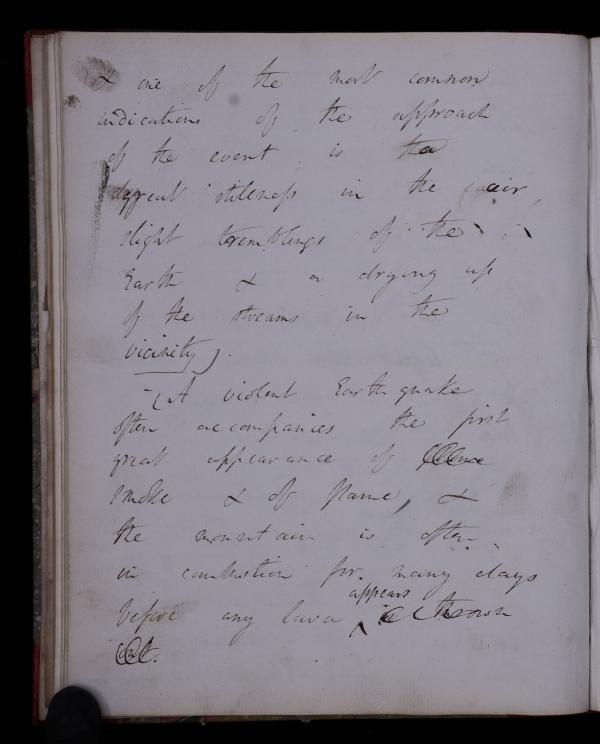 & one of the most common
indications of the approach
of the event is the
great stilness in the air,
slight tremblings of the
Earth & a drying up
of the streams in the
vicinity).
-(A violent Earthquake
often accompanies the first
great appearance of
smoke & of flame, &
the mountain is often
in combustion for many days
before any lava appears is thrown
out.